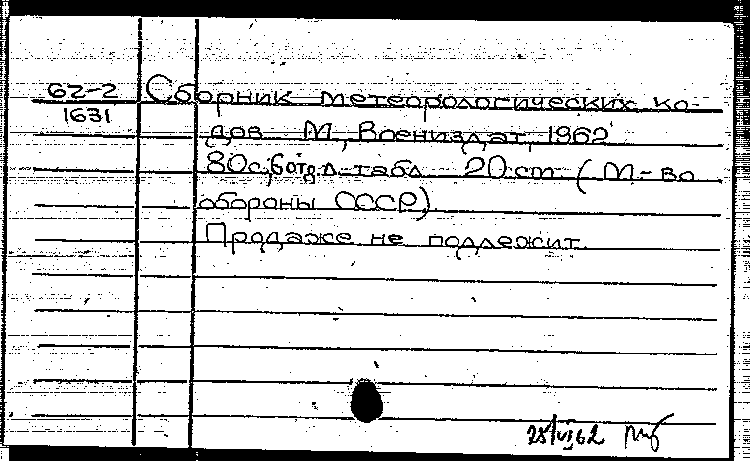 62-2 Сборник метеорологических ко-
1631
дов. М., Воениздат, 1962
80с; 6 отд. л. табл. 20 см (М-во
обороны СССР).
Продаже не подлежит.
28/VI 62